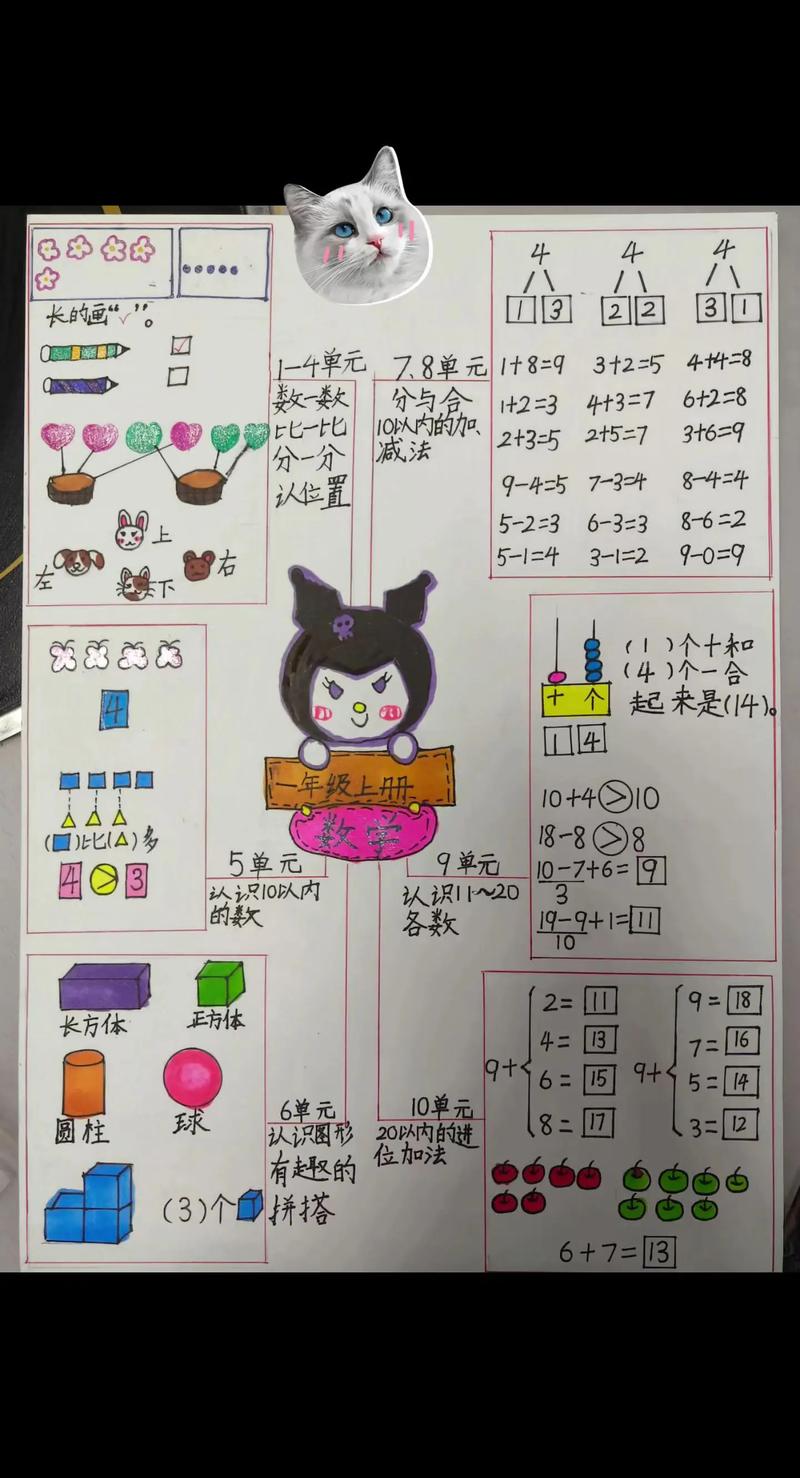 长的画“✓”。
上
左
右
下
1—4单元
数一数
比一比
分一分
认位置
7、8单元
分与合
10以内的加、
减法
4 4 4
1 3 2 2 3 1
1+8=9 3+2=5 4+4=8
1+2=3 4+3=7 6+2=8
2+3=5 2+5=7 3+6=9
9-4=5 7-3=4 8-4=4
5-2=3 6-3=3 8-6=2
5-1=4 3-1=2 9-0=9
一年级上册
数学
4
(■)比(▲)多
4 > 3
5单元
认识10以内
的数
9单元
认识11~20
各数
十 个
1 4
(1)个十和
(4)个一合
起来是(14)。
10+4>10
18-8>8
10-7+6=9
3
19-9+1=11
10
长方体
正方体
圆柱
球
(3)个
6单元
认识图形
有趣的
拼搭
10单元
20以内的进
位加法
9+
2=11
4=13
6=15
8=17
9+
9=18
7=16
5=14
3=12
6+7=13